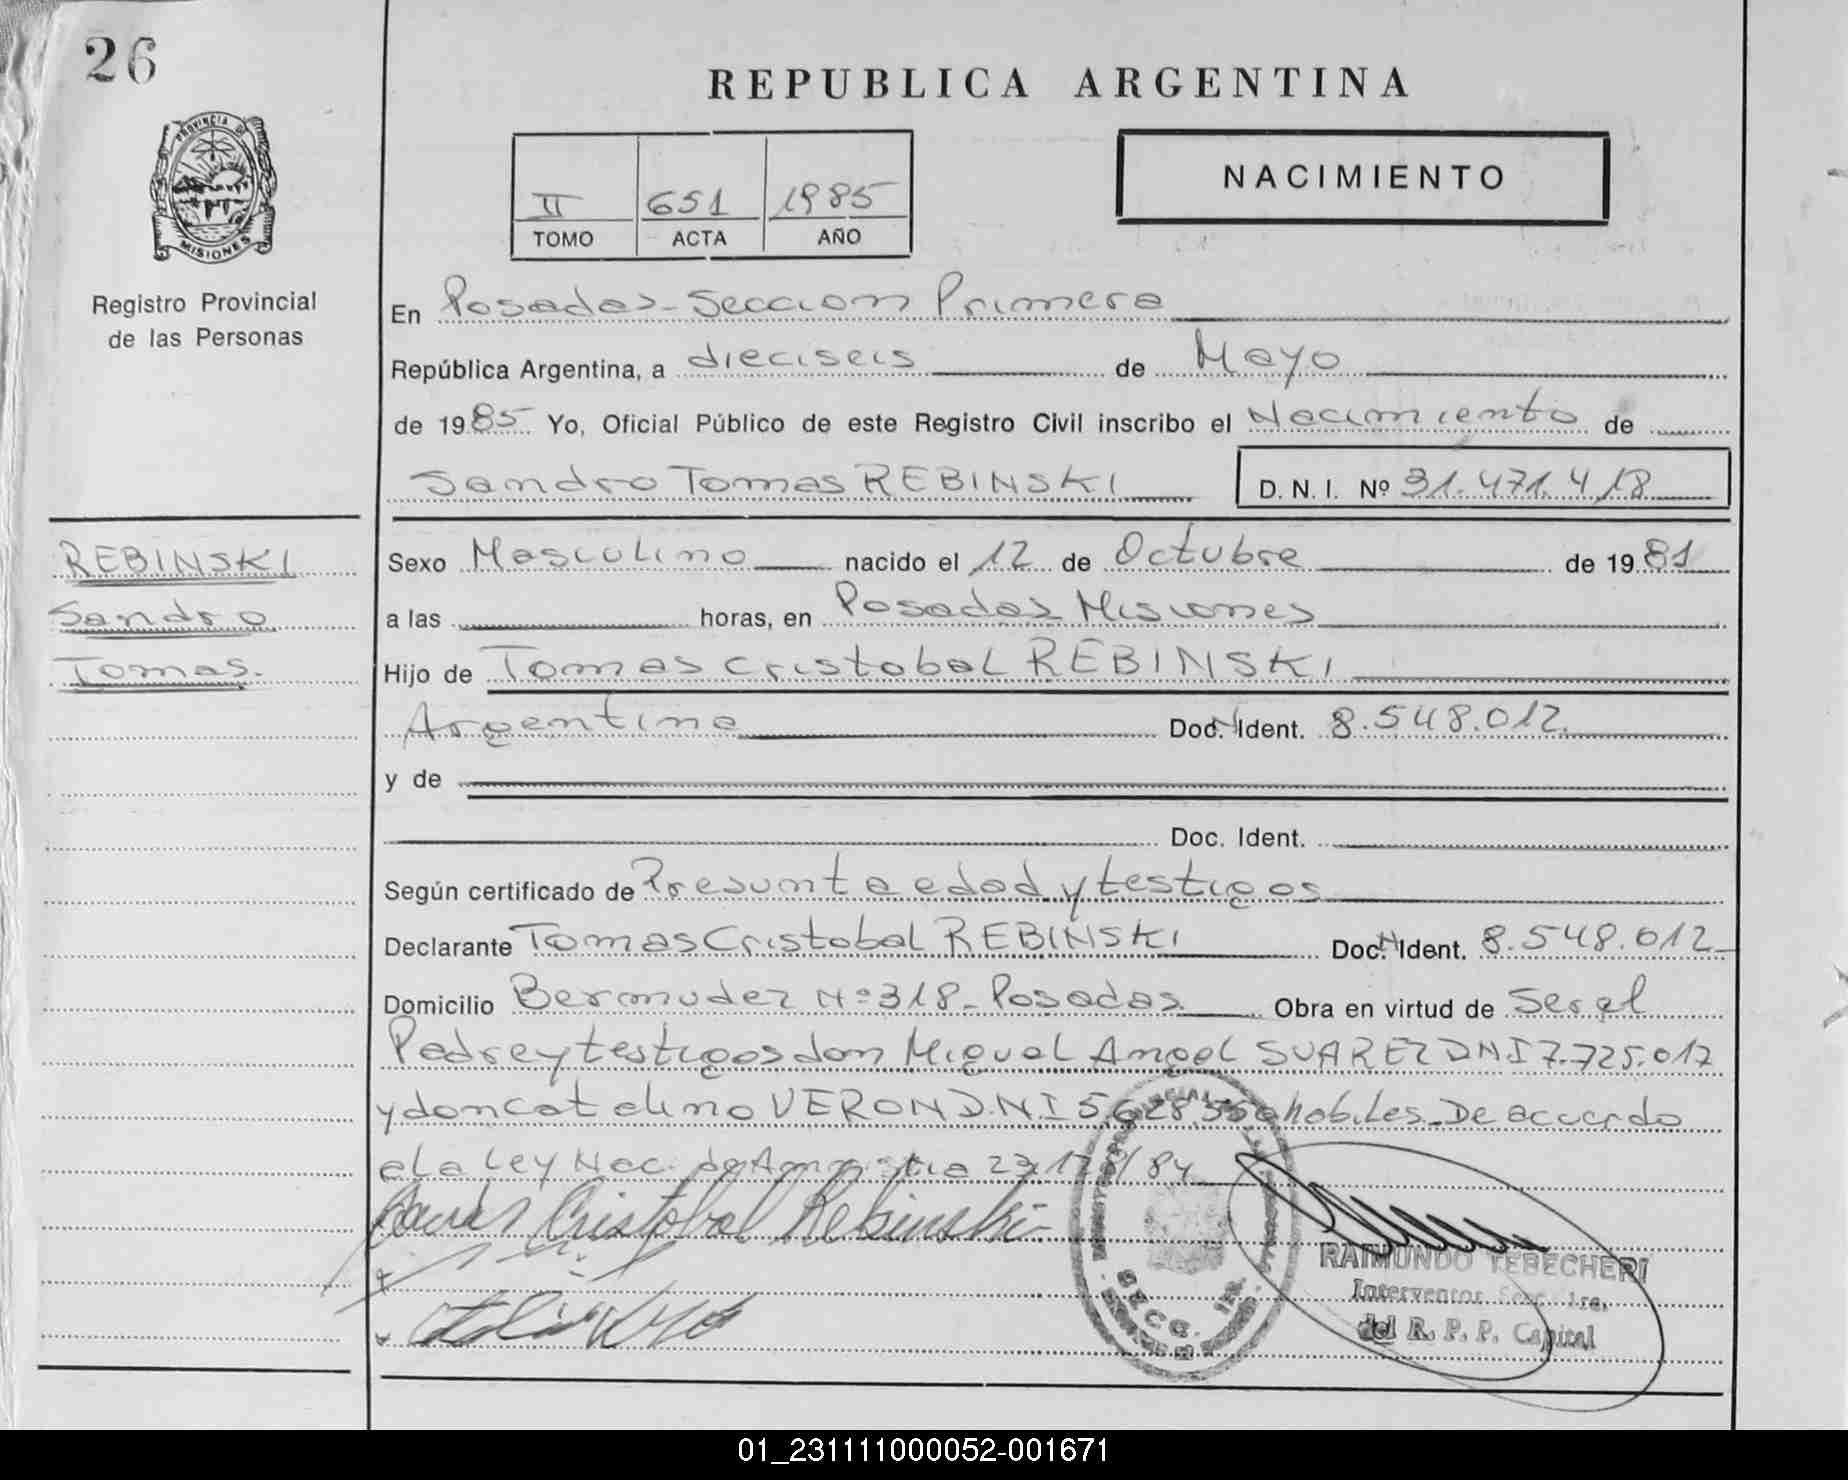 26
REPUBLICA ARGENTINA
PROVINCIA DE
MISIONES
II 651 1985
TOMO ACTA AÑO
NACIMIENTO
Registro Provincial
de las Personas
En Posadas-Seccion Primera
República Argentina, a dieciseis de Mayo
de 1985 Yo, Oficial Público de este Registro Civil inscribo el Nacimiento de
Sandro Tomas REBINSKI D.N.I. Nº 31.471.418
REBINSKI
Sandro
Tomas.
Sexo Masculino nacido el 12 de Octubre de 1981
a las horas, en Posadas Misiones
Hijo de Tomas Cristobal REBINSKI
Argentino Doc. Ident. 8.548.012.
y de
Doc. Ident.
Según certificado de Presunta edad y testigos
Declarante Tomas Cristobal REBINSKI Doc. Ident. 8.548.012
Domicilio Bermudez Nº 318- Posadas. Obra en virtud de Ser el
Padre y testigos don Miguel Angel SUAREZ DNI 7.725.017
y don Catalino VERON D.N.I 5.628. habiles. De acuerdo
a la Ley Nac. de Amnistia /84
Cristobal Rebinski
RAIMUNDO TEBECHERI
Interventor Secc. 1ra.
del R. P. P. Capital
SECC. 1RA.
01_231111000052-001671